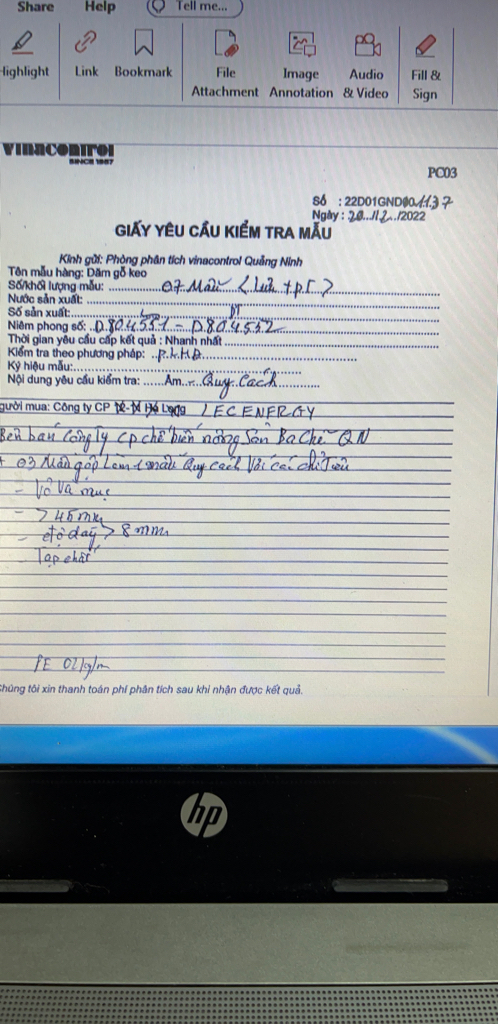 Share Help Tell me...
Highlight Link Bookmark File Attachment Image Annotation Audio & Video Fill & Sign
vinacontrol
SINCE 1957
PC03
Số : 22D01GND01137
Ngày : 20../12../2022
GIẤY YÊU CẦU KIỂM TRA MẪU
Kính gửi: Phòng phân tích vinacontrol Quảng Ninh
Tên mẫu hàng: Dăm gỗ keo
Số/khối lượng mẫu: 07 Mẫu
Nước sản xuất:
Số sản xuất:
Niêm phong số: D.804551 - D.804552
Thời gian yêu cầu cấp kết quả : Nhanh nhất
Kiểm tra theo phương pháp:
Ký hiệu mẫu:
Nội dung yêu cầu kiểm tra: Ẩm - Quy Cách
gười mua: Công ty CP LEC ENERGY
Bên bán Công Ty CP chế biến nông Sản Ba Chẽ QN
+ 03 Mẫu gộp Làm 1 mẫu Quy cách Với các chỉ Tiêu
- Vỏ và mục
- > 45 mm
- độ dày > 8 mm
- Tạp chất
Chúng tôi xin thanh toán phí phân tích sau khi nhận được kết quả.
hp